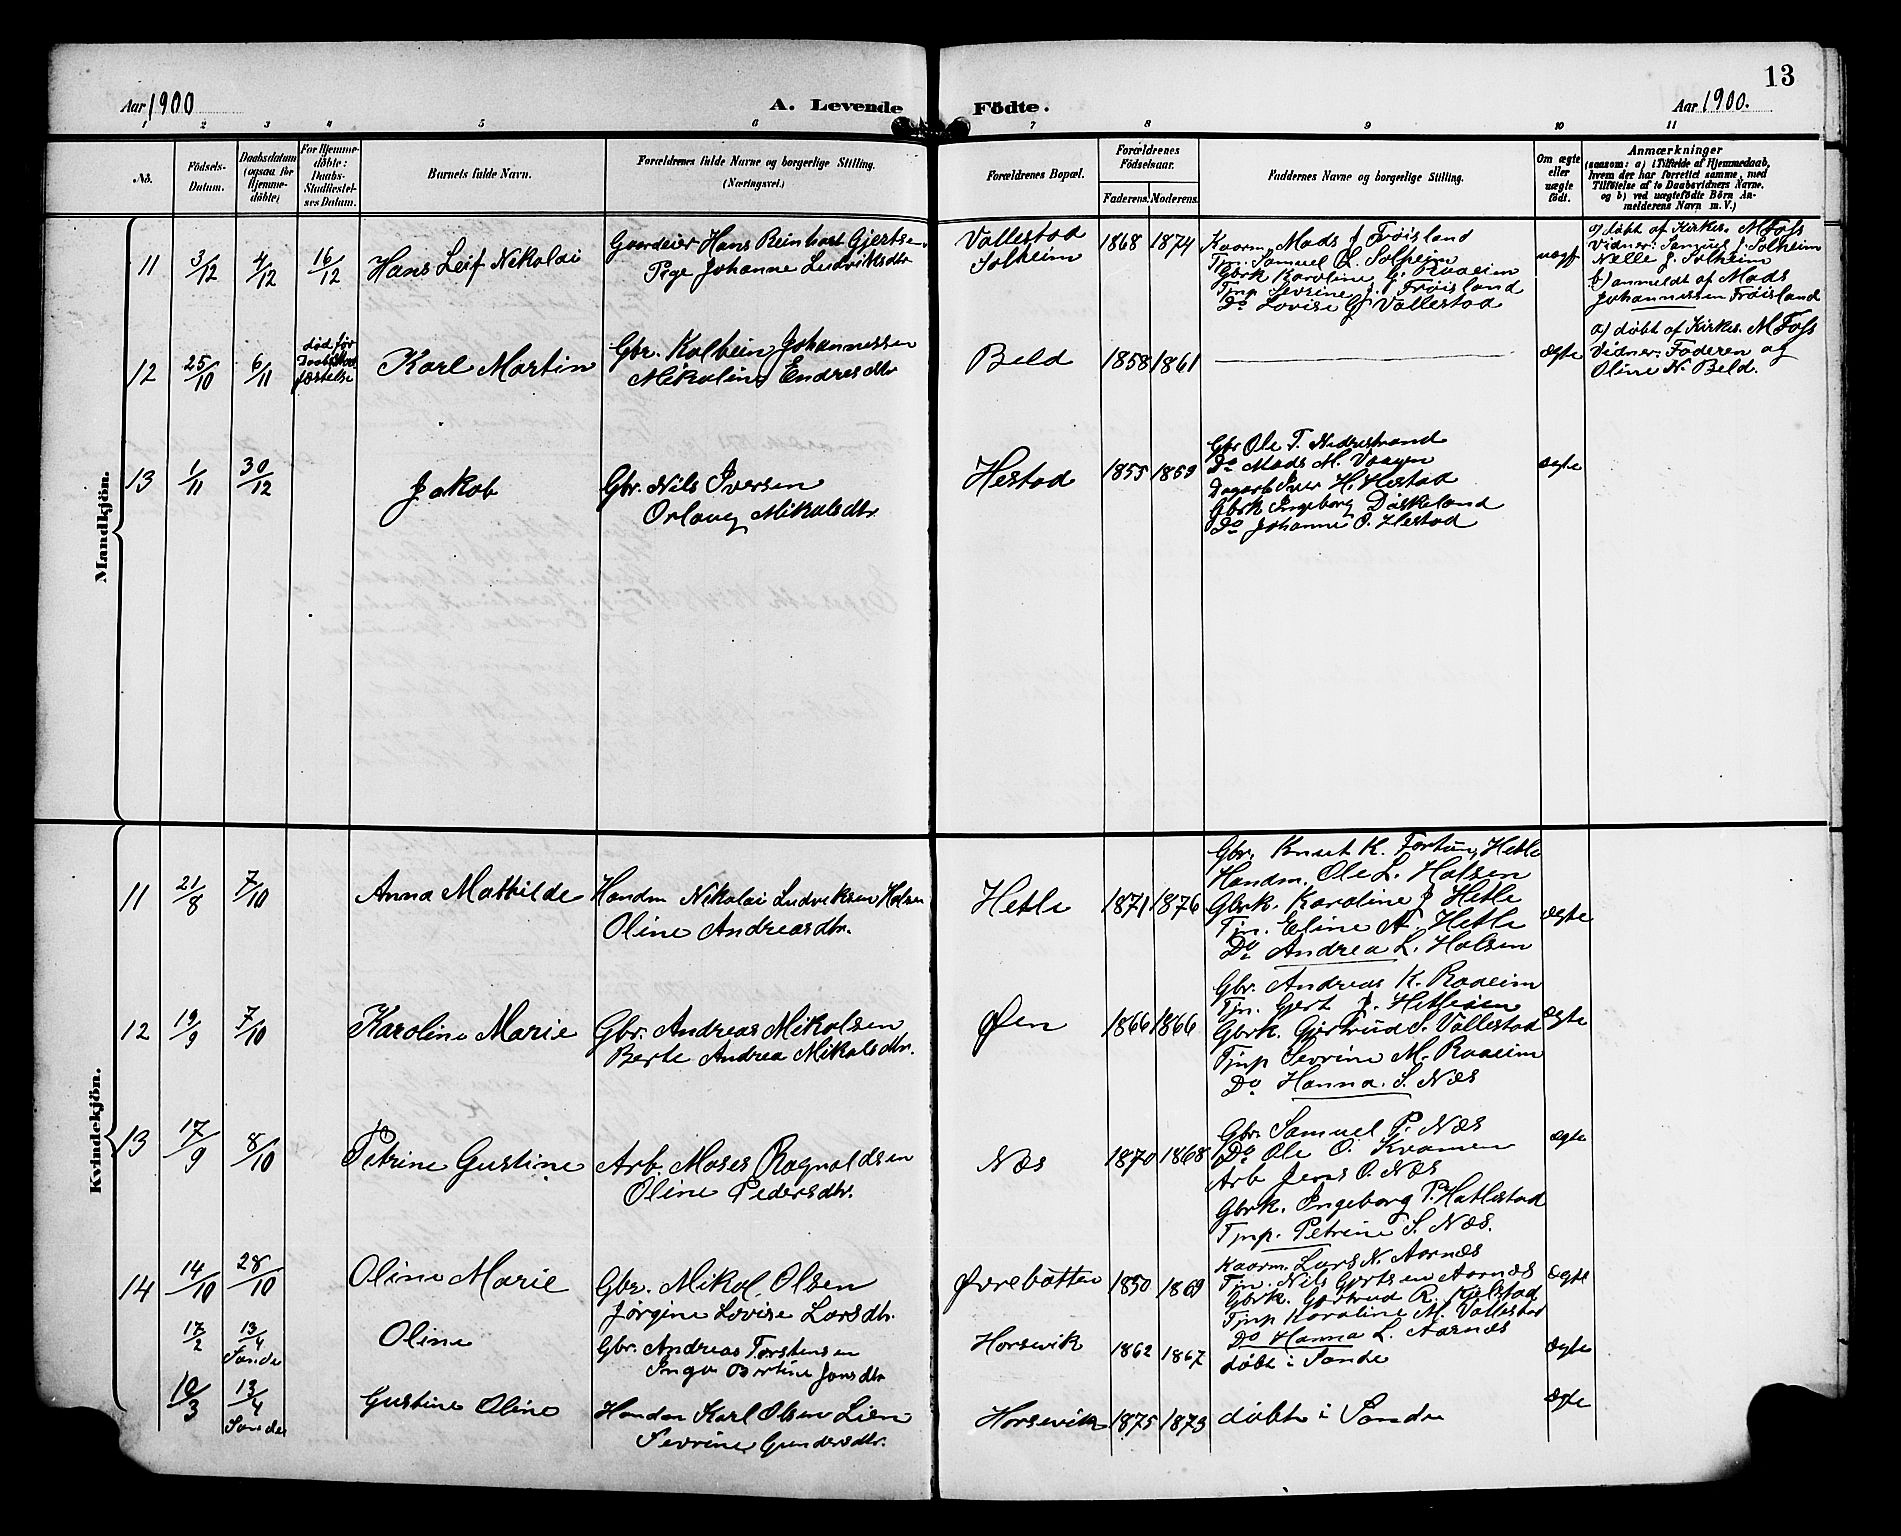 13
Aar 1900
A. Levende Födte.
Aar 1900.
1 2 3 4 5 6 7 8 9 10 11
No.
Födsels-Datum.
Daabsdatum (ogsaa for Hjemme-döbte)
For Hjemme-döbte: Daabs-Stadfæstel-ses Datum.
Barnets fulde Navn.
Forældrenes fulde Navne og borgerlige Stilling. (Næringsvei.)
Forældrenes Bopæl.
Forældrenes Födselsaar.
Faderens. Moderens.
Faddernes Navne og borgerlige Stilling.
Om ægte eller uægte födt.
Anmærkninger
(saasom: a) i Tilfælde af Hjemmedaab, hvem der har forrettet samme, med Tilföielse af to Daabsvidners Navne, og b) ved uægtefödte Börn An-melderens Navn m. V.)
Mandkjön.
11 3/12 4/12 16/12 Hans Leif Nikolai
Gaardeier Hans Reinhart Gjertsen
Pige Johanne Ludviksdtr
Vallestad
Solheim
1868 1874
Kaarm. Mads J. Frøisland
Tjn. Samuel A. Solheim
Gbrk Karoline G. Raaeim
Tjnp Sevrine J. Frøisland
Do Lovise G. Vallestad
uægt
a) døbt af Kirkes. M Foss
Vidner: Samuel J. Solheim
Nelle J. Solheim
b) anmeldt af Mads
Johannessen Frøisland
12 25/10 6/11
død før
Daabsstad
fæstelse
Karl Martin
Gbr. Kolbein Johannessen
Mikoline Endresdtr
Beld
1858 1861
ægte
a) døbt af Kirkes. M Foss
Vidner: Faderen og
Oline N. Beld.
13 1/11 30/12 Jakob
Gbr. Nils Iversen
Orlaug Mikalsdtr.
Hestad
1855 1859
Gbr Ole T. Nedrestrand
Do Mads M. Vaagen
Dagarb Iver H. Hestad
Gbrk Ingeborg Döskeland
Do Johanne O. Hestad
ægte
Kvindekjön.
11 21/8 7/10 Anna Mathilde
Handm Nikolai Ludviksen Halsen
Oline Andreasdtr.
Hetle
1871 1876
Gbr. Knut K. Fortun, Hetle
Handm. Ole L. Halsen
Gbrk. Karoline J Hetle
Tjn. Eline A. Hetle
Do Andrea L. Halsen
ægte
12 19/9 7/10 Karoline Marie
Gbr. Andreas Mikalsen
Berte Andrea Mikalsdtr.
Øen
1866 1866
Gbr. Andreas K. Raaeim
Tjn. Gert J. Hetleøen
Gbrk. Gjertrud S. Vallestad
Tjnp Sevrine M. Raaeim
Do Hanna. S. Næs
ægte
13 17/9 8/10 Petrine Gustine
Arb. Moses Ragnaldsen
Oline Pedersdtr.
Næs
1870 1868
Gbr. Samuel P. Næs
Do Ole O. Kvamen
Arb Jens O. Næs
Gbrk. Ingeborg P. Hatlestad
Tjnp. Petrine S. Næs.
ægte
14 14/10 28/10 Oline Marie
Gbr. Mikal Olsen
Jørgine Lovise Larsdtr.
Øvrebotten
1850 1869
Kaarm. Lars N. Aarnæs
Tjn. Nils Gjertsen Aarnæs
Gbrk. Gjertrud R. Kjelstad
Tjnp Karoline M. Vallestad
Do Hanna L. Aarnæs
ægte
17/2 13/4 Sande
Oline
Gbr. Andreas Torstensen
Inga Bertine Jonsdtr
Horsevik
1862 1867
døbt i Sande
ægte
10/3 13/4 Sande
Gustine Oline
Handm Karl Olsen Lien
Sevrine Gundersdtr.
Horsevik
1875 1873
døbt i Sande
ægte